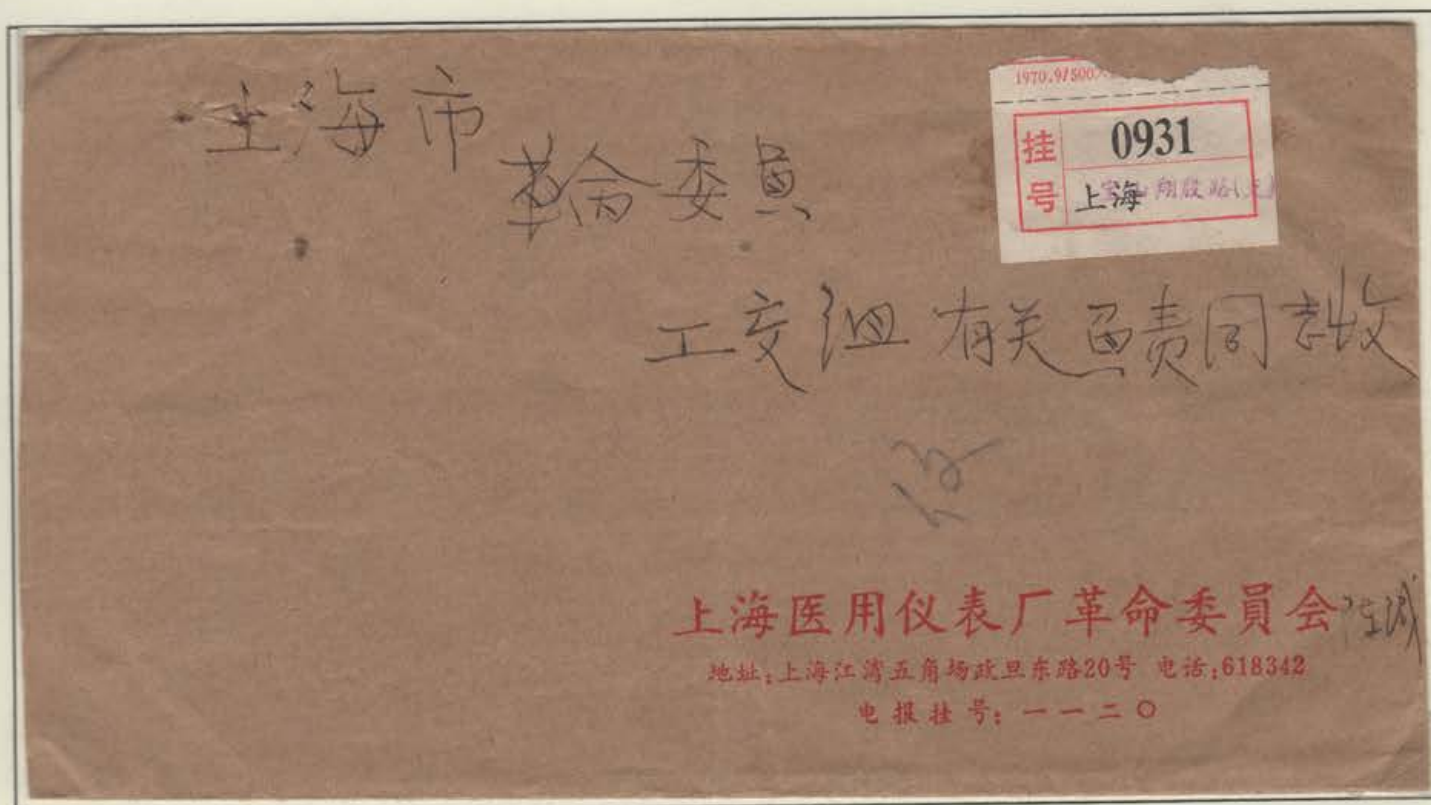 上海市
革命委員
工交组 有关负责同志收
1970.9/500
挂号
0931
上海
宝山翔殷路
上海医用仪表厂革命委員会
地址:上海江湾五角场政旦东路20号 电话:618342
电报挂号:一一二〇